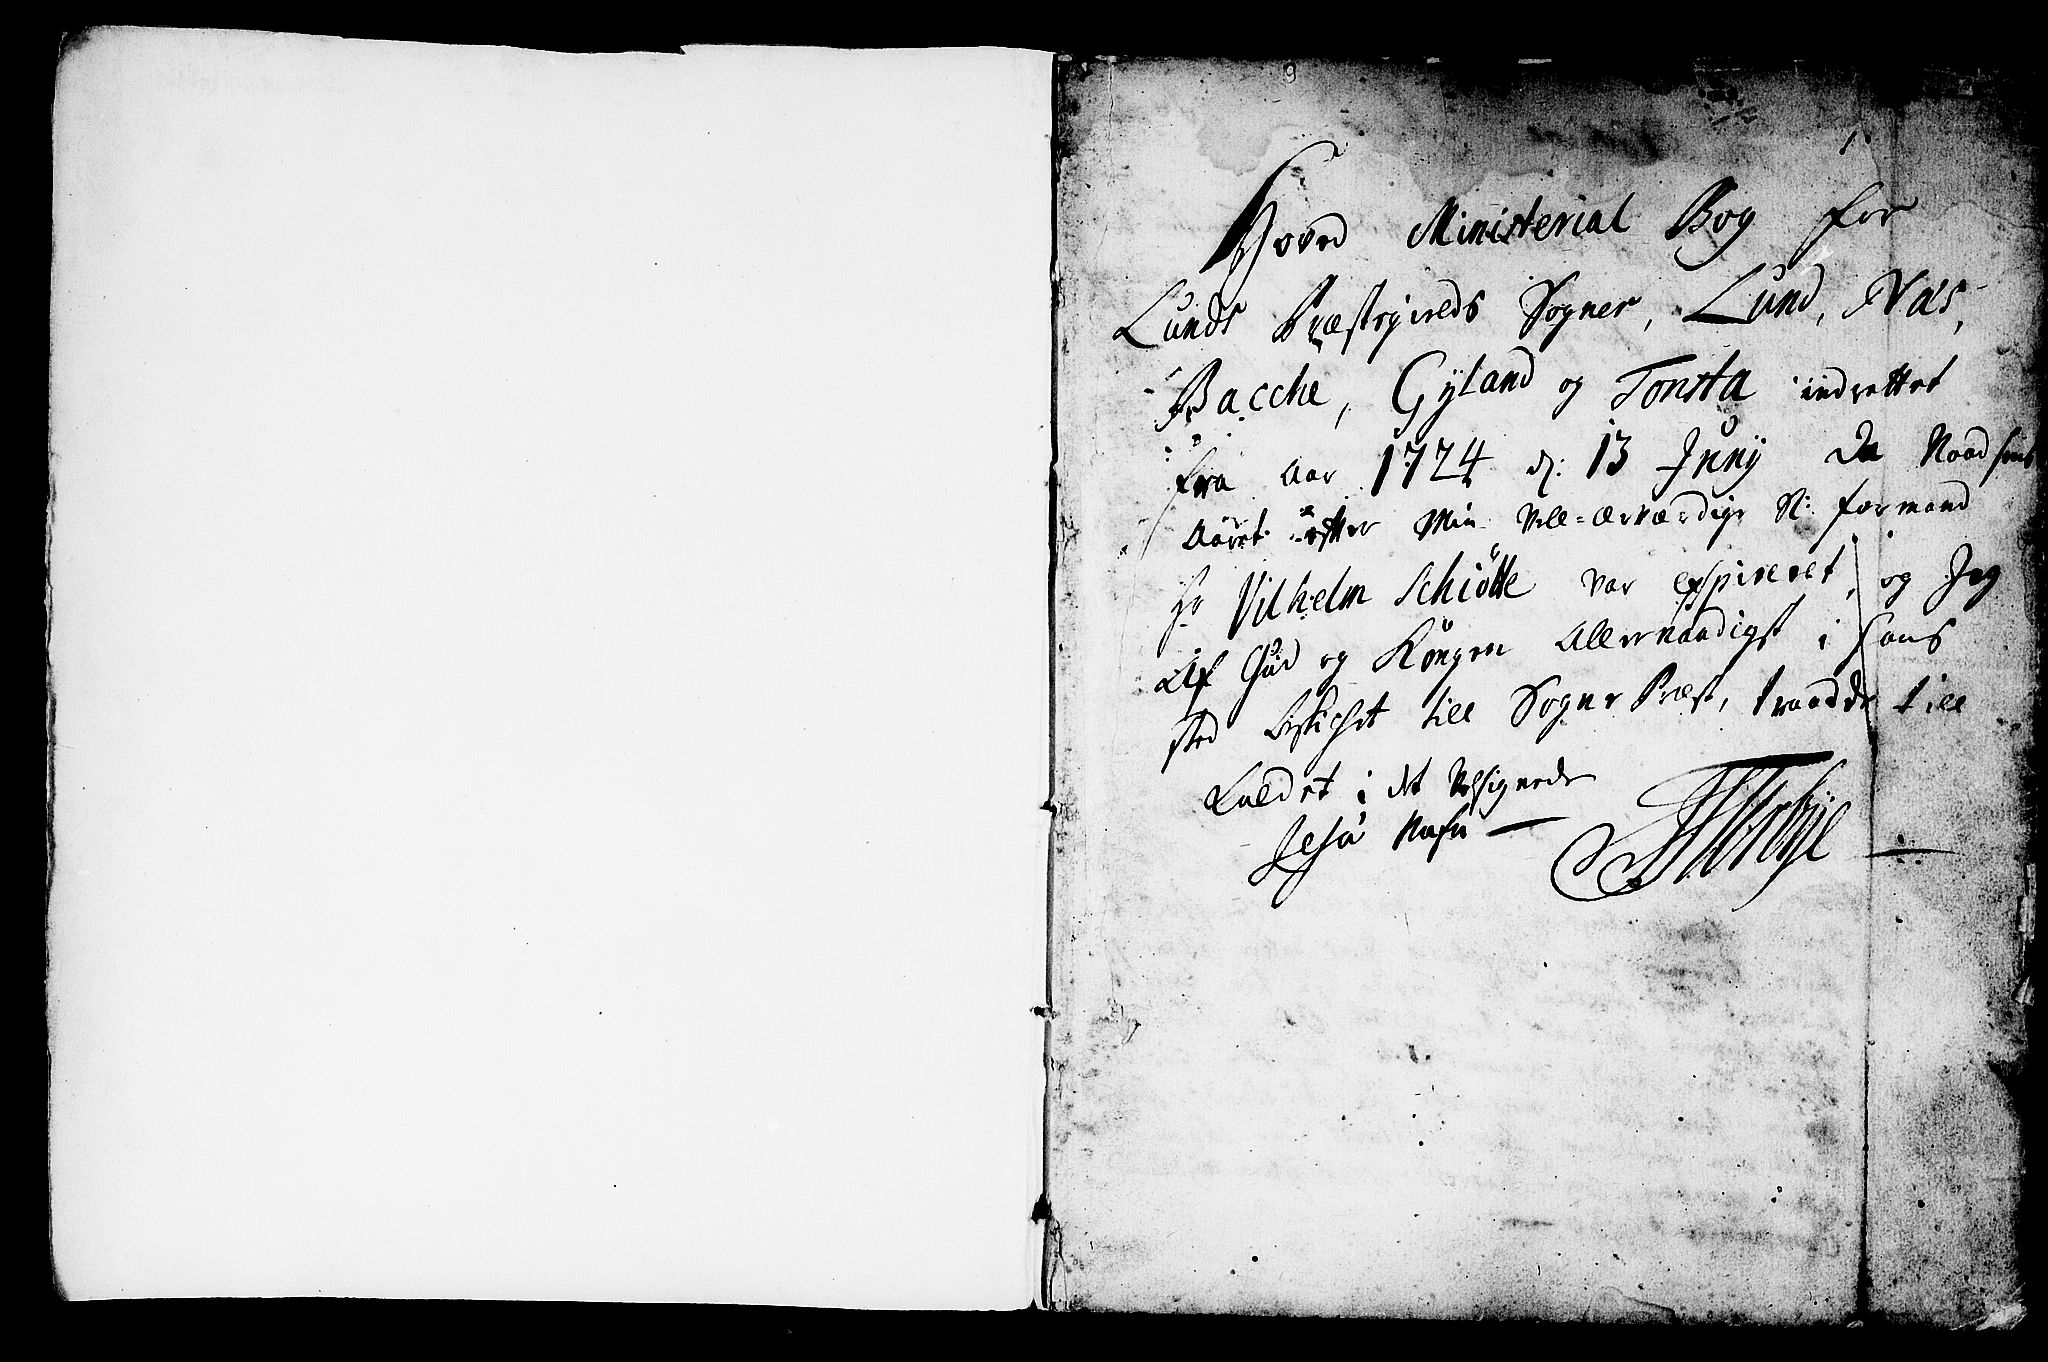 Hoved Ministerial Bog for
Lunds Præstegields Sogner, Lund, Næs,
Bacche, Gyland og Tonsta indrettet
fra aar 1724 d: 13 Juny da Naadsens
Aaret efter Min Vell=ærværdige S: formand
Hr Vilhelm Schiötte var exspireret, og Jeg
Af Gud og Kongen Allernaadigst i hans
sted beskichet till Sogne Præst, traadde till
Caldet i det Velsignede
Jesu Nafn —